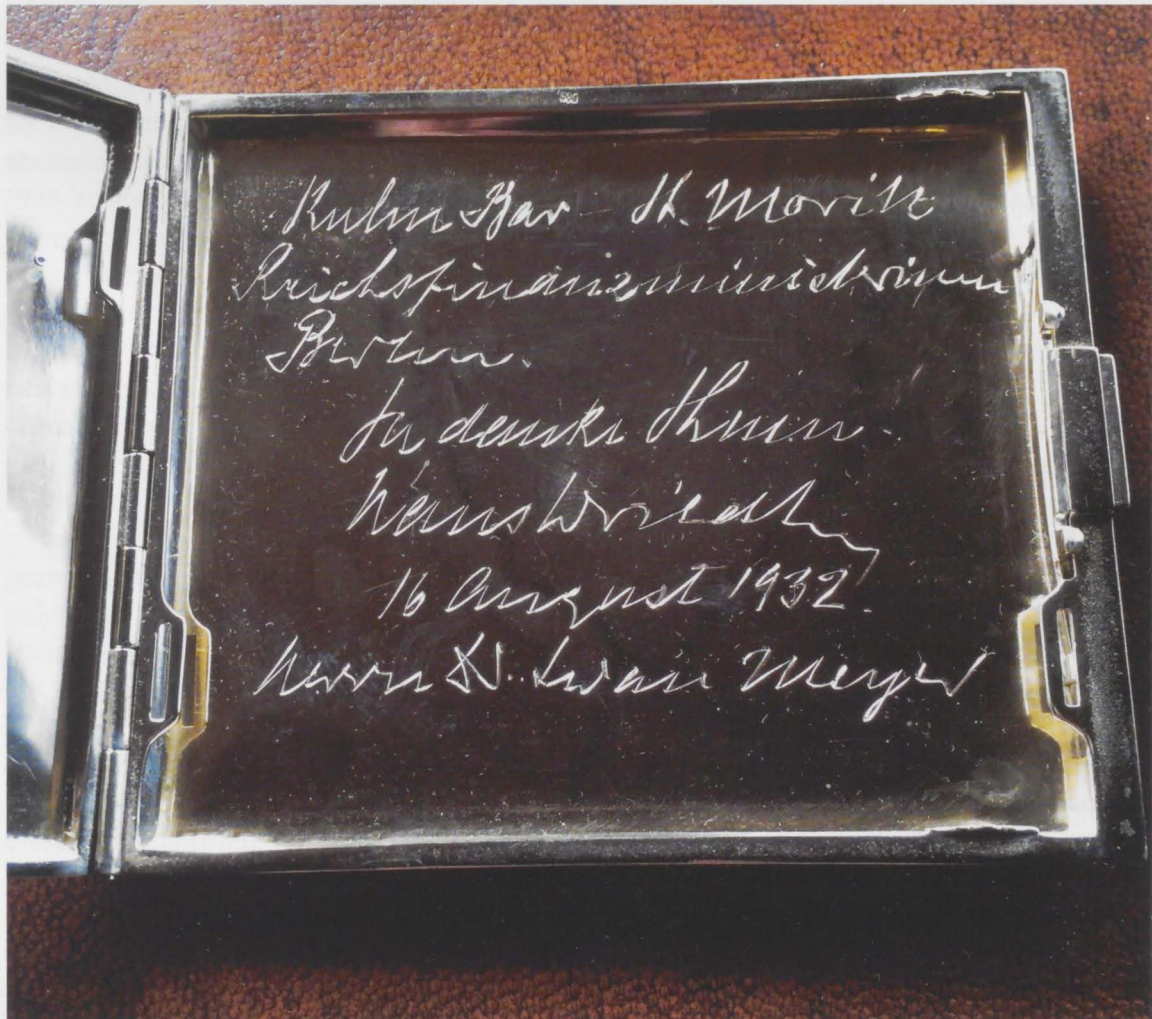 585
Kulm Bar - St. Moritz
Reichsfinanzministerium
Berlin.
Ich danke Ihnen.
Hans Wriedt
16 August 1932.
Herrn Dr. Iwan Meyer